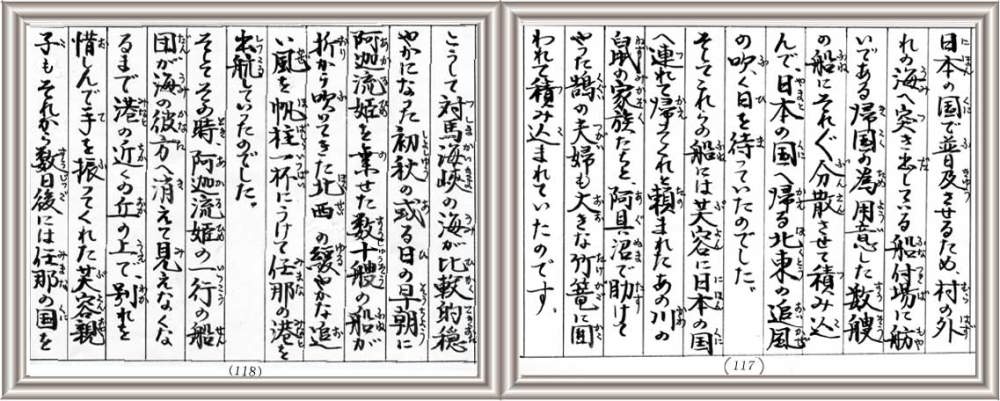 日本の国で普及させるため、村の外
れの海へ突き出している船付場に舫
いである帰国の為用意した数艘
の船にそれぞれ分散させて積み込
んで、日本の国へ帰る北東の追風
の吹く日を待っていたのでした。
そしてこれらの船には芙容に日本の国
へ連れて帰ってくれと頼まれたあの川の
鼠の家族たちと、阿具沼で助けて
やった鵠の夫婦も大きな竹篭に囲
われて積み込まれていたのです。
(117)
こうして対馬海峡の海が比較的穏
やかになった初秋の或る日の早朝に
阿迦流姫を乗せた数十艘の船が
折から吹いてきた北西の緩やかな追
い風を帆柱一杯にうけて任那の港を
出航していったのでした。
そしてその時、阿迦流姫の一行の船
団が海の彼方へ消えて見えなくな
るまで港の近くの丘の上で、別れを
惜しんで手を振ってくれた芙容親
子もそれから数日後には任那の国を
(118)